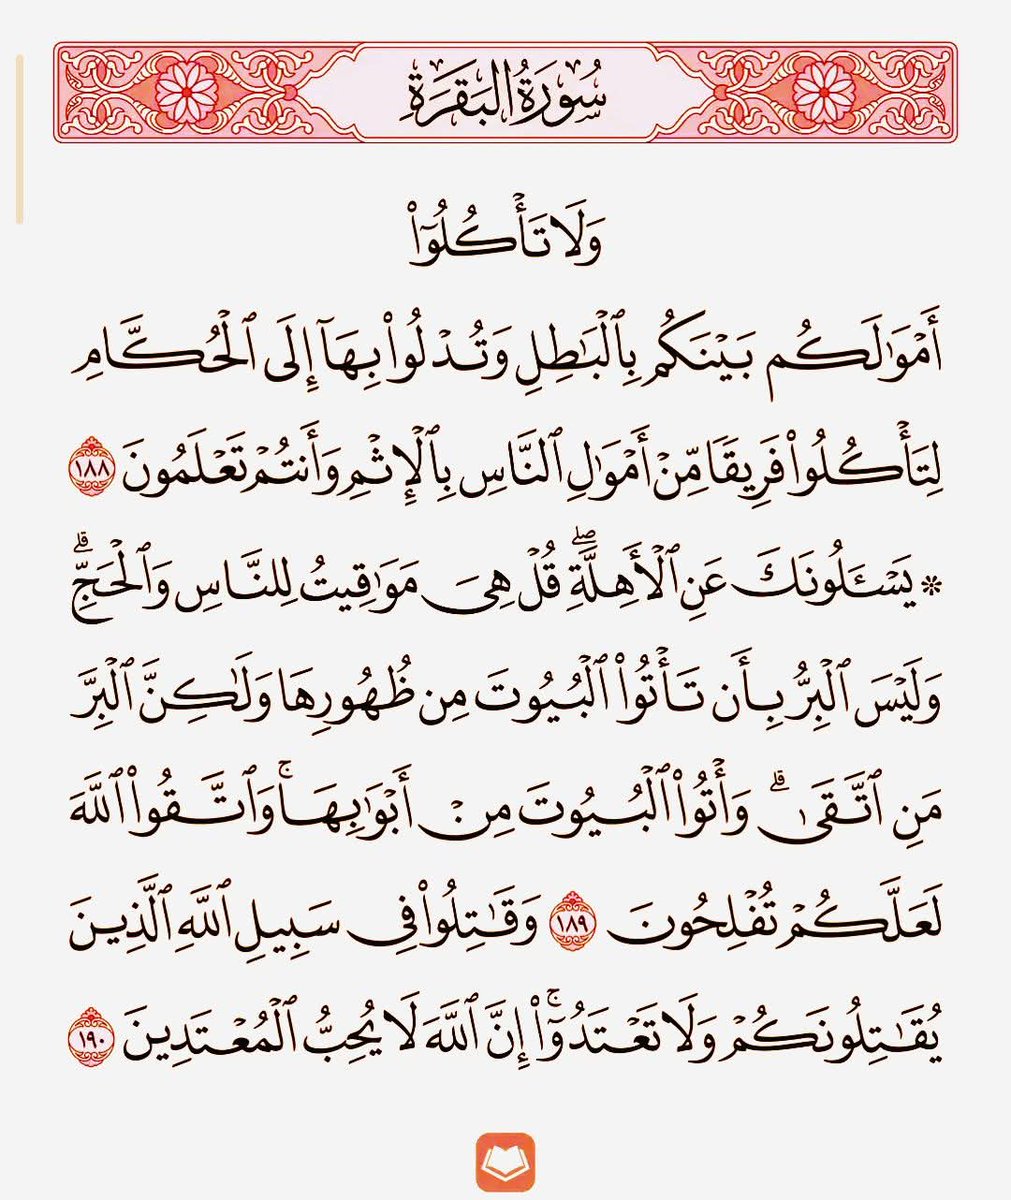 سُورَةُ البَقَرَةِ
وَلَا تَأۡكُلُوٓاْ
أَمۡوَٰلَكُم بَيۡنَكُم بِٱلۡبَٰطِلِ وَتُدۡلُواْ بِهَآ إِلَى ٱلۡحُكَّامِ
لِتَأۡكُلُواْ فَرِيقٗا مِّنۡ أَمۡوَٰلِ ٱلنَّاسِ بِٱلۡإِثۡمِ وَأَنتُمۡ تَعۡلَمُونَ ١٨٨
۞ يَسۡـَٔلُونَكَ عَنِ ٱلۡأَهِلَّةِۖ قُلۡ هِيَ مَوَٰقِيتُ لِلنَّاسِ وَٱلۡحَجِّۗ
وَلَيۡسَ ٱلۡبِرُّ بِأَن تَأۡتُواْ ٱلۡبُيُوتَ مِن ظُهُورِهَا وَلَٰكِنَّ ٱلۡبِرَّ
مَنِ ٱتَّقَىٰۗ وَأۡتُواْ ٱلۡبُيُوتَ مِنۡ أَبۡوَٰبِهَاۚ وَٱتَّقُواْ ٱللَّهَ
لَعَلَّكُمۡ تُفۡلِحُونَ ١٨٩ وَقَٰتِلُواْ فِي سَبِيلِ ٱللَّهِ ٱلَّذِينَ
يُقَٰتِلُونَكُمۡ وَلَا تَعۡتَدُوٓاْۚ إِنَّ ٱللَّهَ لَا يُحِبُّ ٱلۡمُعۡتَدِينَ ١٩٠